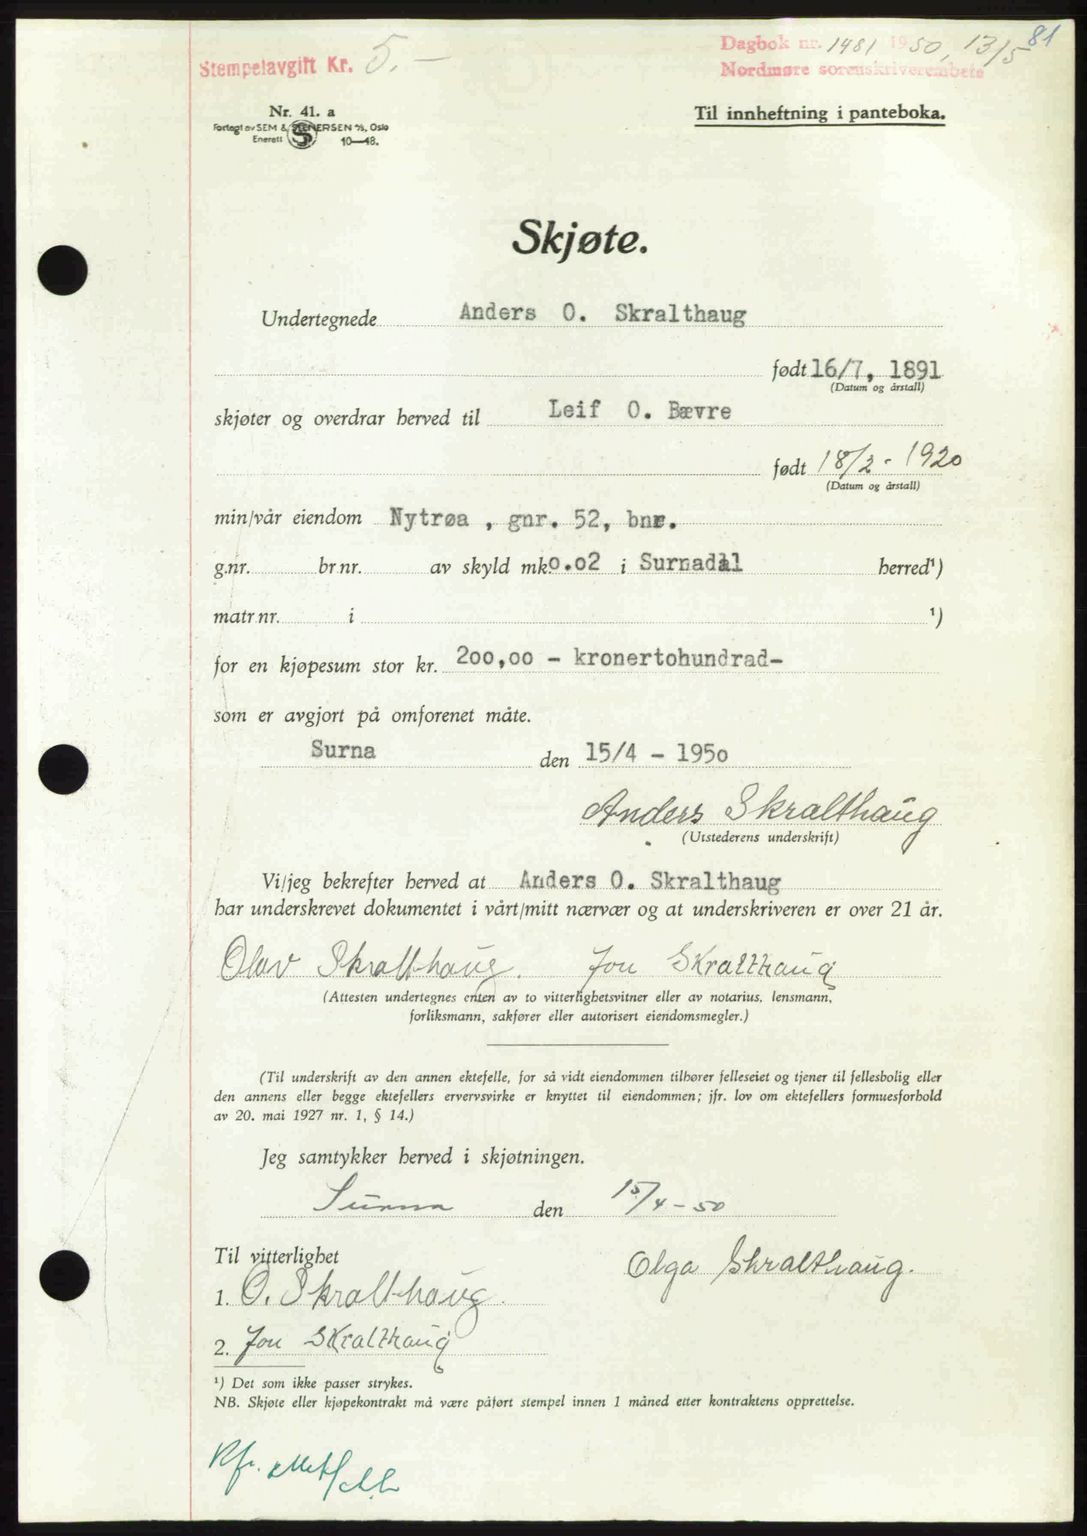 81
Stempelavgift Kr. 5.—
Dagbok nr. 1481 1950, 13/5
Nordmøre sorenskriverembete
Nr. 41. a
Forlagt av SEM & STENERSEN A/S, Oslo
Enerett 10—48.
Til innheftning i panteboka.
Skjøte.
Undertegnede Anders O. Skralthaug
født 16/7, 1891
(Datum og årstall)
skjøter og overdrar herved til Leif O. Bævre
født 18/2 - 1920
(Datum og årstall)
min/vår eiendom Nytrøa , gnr. 52, bnr.
g.nr. br nr. av skyld mk. 0.02 i Surnadal herred¹)
matr.nr. i ¹)
for en kjøpesum stor kr. 200,00 - kronertohundrad-
som er avgjort på omforenet måte.
Surna den 15/4 - 1950
Anders Skralthaug
(Utstederens underskrift)
Vi/jeg bekrefter herved at Anders O. Skralthaug
har underskrevet dokumentet i vårt/mitt nærvær og at underskriveren er over 21 år.
Olav Skralthaug. Jon Skralthaug
(Attesten undertegnes enten av to vitterlighetsvitner eller av notarius, lensmann,
forliksmann, sakfører eller autorisert eiendomsmegler.)
(Til underskrift av den annen ektefelle, for så vidt eiendommen tilhører felleseiet og tjener til fellesbolig eller
den annens eller begge ektefellers ervervsvirke er knyttet til eiendommen; jfr. lov om ektefellers formuesforhold
av 20. mai 1927 nr. 1, § 14.)
Jeg samtykker herved i skjøtningen.
Surna den 15/4 - 50
Til vitterlighet
Olga Skralthaug.
1. O. Skralthaug.
2. Jon Skralthaug
¹) Det som ikke passer strykes.
NB. Skjøte eller kjøpekontrakt må være påført stempel innen 1 måned etter kontraktens opprettelse.